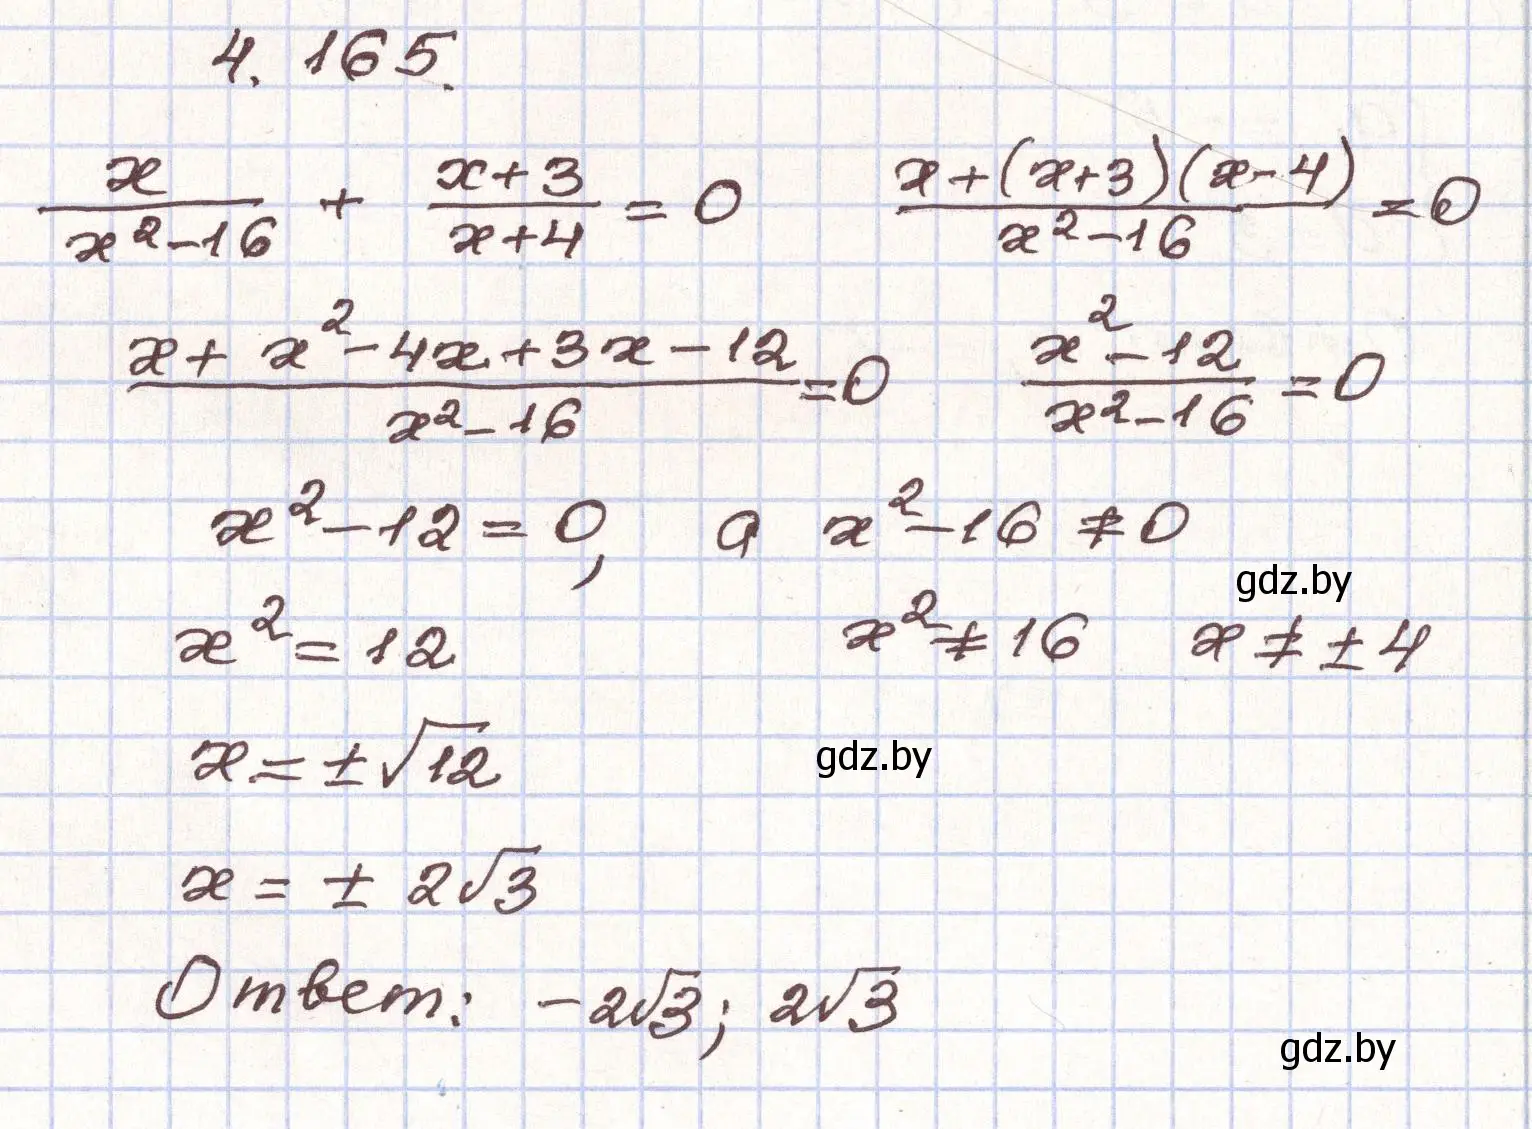 4.165.
x/(x²-16) + (x+3)/(x+4) = 0    (x+(x+3)(x-4))/(x²-16) = 0
(x+x²-4x+3x-12)/(x²-16) = 0    (x²-12)/(x²-16) = 0
x²-12=0, а x²-16≠0
gdz.by
x²=12    x²≠16    x≠±4
x=±√12
gdz.by
x=±2√3
Ответ: -2√3; 2√3
gdz.by